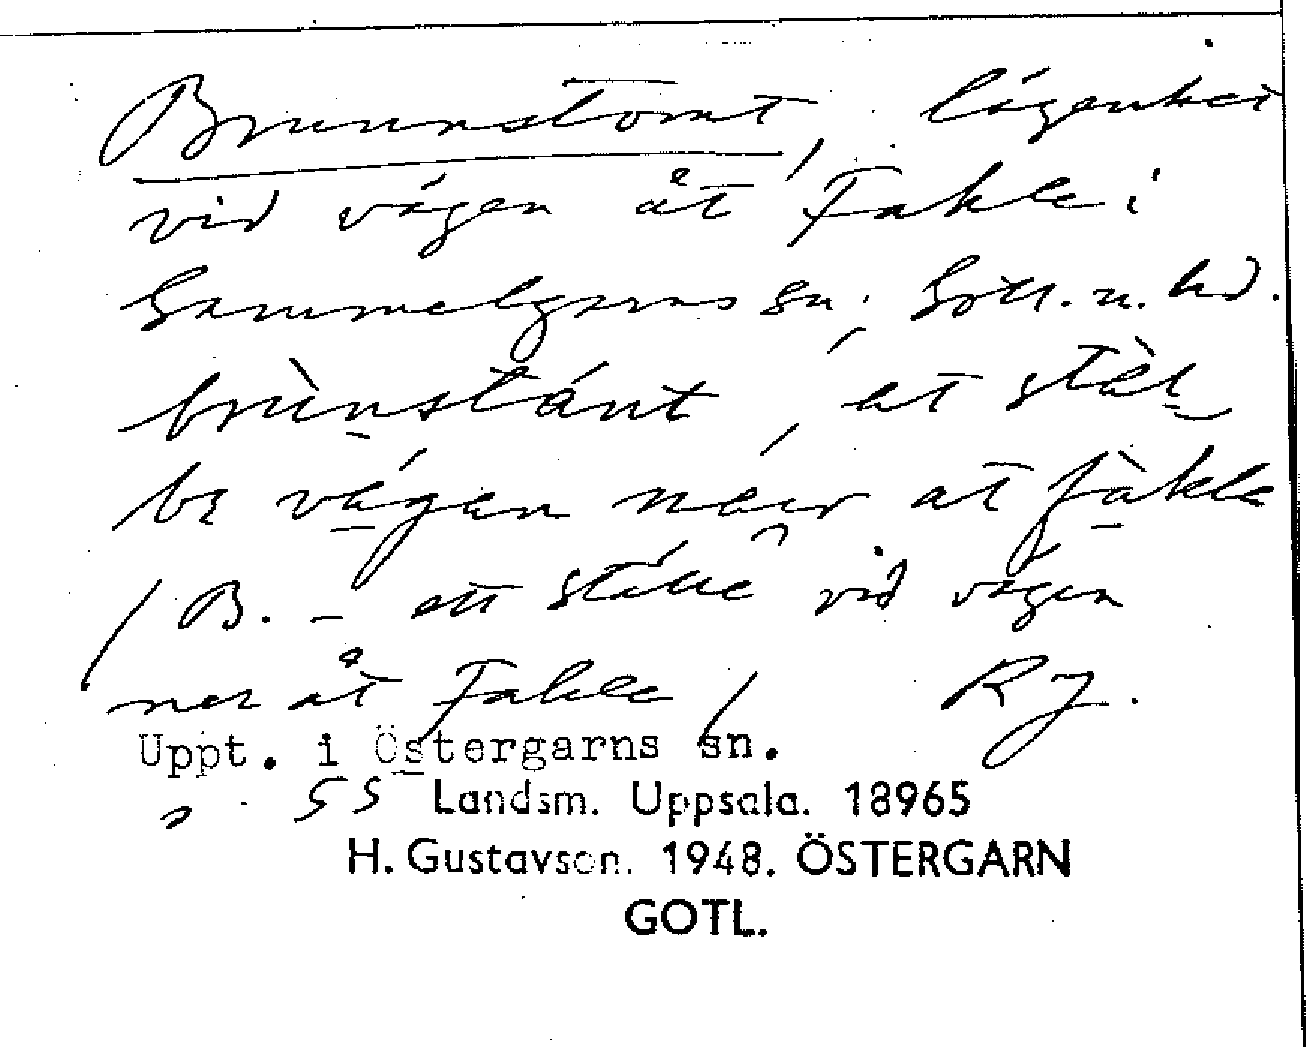 Brunnstomt, lägenhet
vid vägen åt Fakle i
Gammelgarns sn, Gotl. n. hd.
brùnstá̀nt, et stàl̲
be vä́gen néir at fàkle
/ B. – ett ställe vid vägen
ner åt Fakle / RJ.
Uppt. i Östergarns sn.
55 Landsm. Uppsala. 18965
H. Gustavson. 1948. ÖSTERGARN
GOTL.